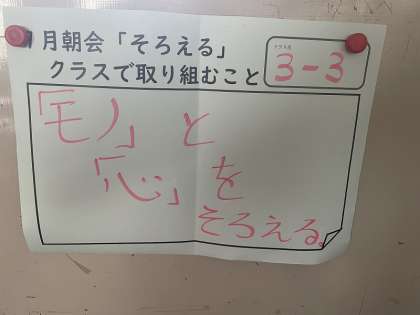 月朝会「そろえる」
クラスで取り組むこと
3-3
「モノ」と
「心」を
そろえる。